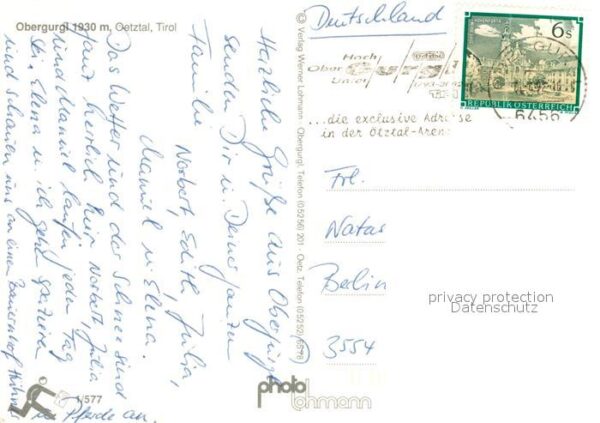 Obergurgl 1930 m, Oetztal, Tirol
Herzliche Grüße aus Obergurgl
senden Dir u. Deiner ganzen
Familie
Norbert, Edith, Julia,
Daniel u. Elena.
Das Wetter und der Schnee sind
ganz herrlich hier. Norbert, Julia
und Daniel laufen jeden Tag
Ski, Elena u. ich gehen spazieren
und schauen uns an einem Bauernhof Hühner
u. Pferde an.
1/577
© Verlag Werner Lohmann · Obergurgl, Telefon (05256) 201 · Oetz, Telefon (05252) 6578
photo
lohmann
Deutschland
Hoch
Ober Gurgl
Unter
...die exclusive Adresse
in der Ötztal-Arena
6 S
REPUBLIK ÖSTERREICH
6456
Frl.
Natas
Berlin
3554
privacy protection
Datenschutz